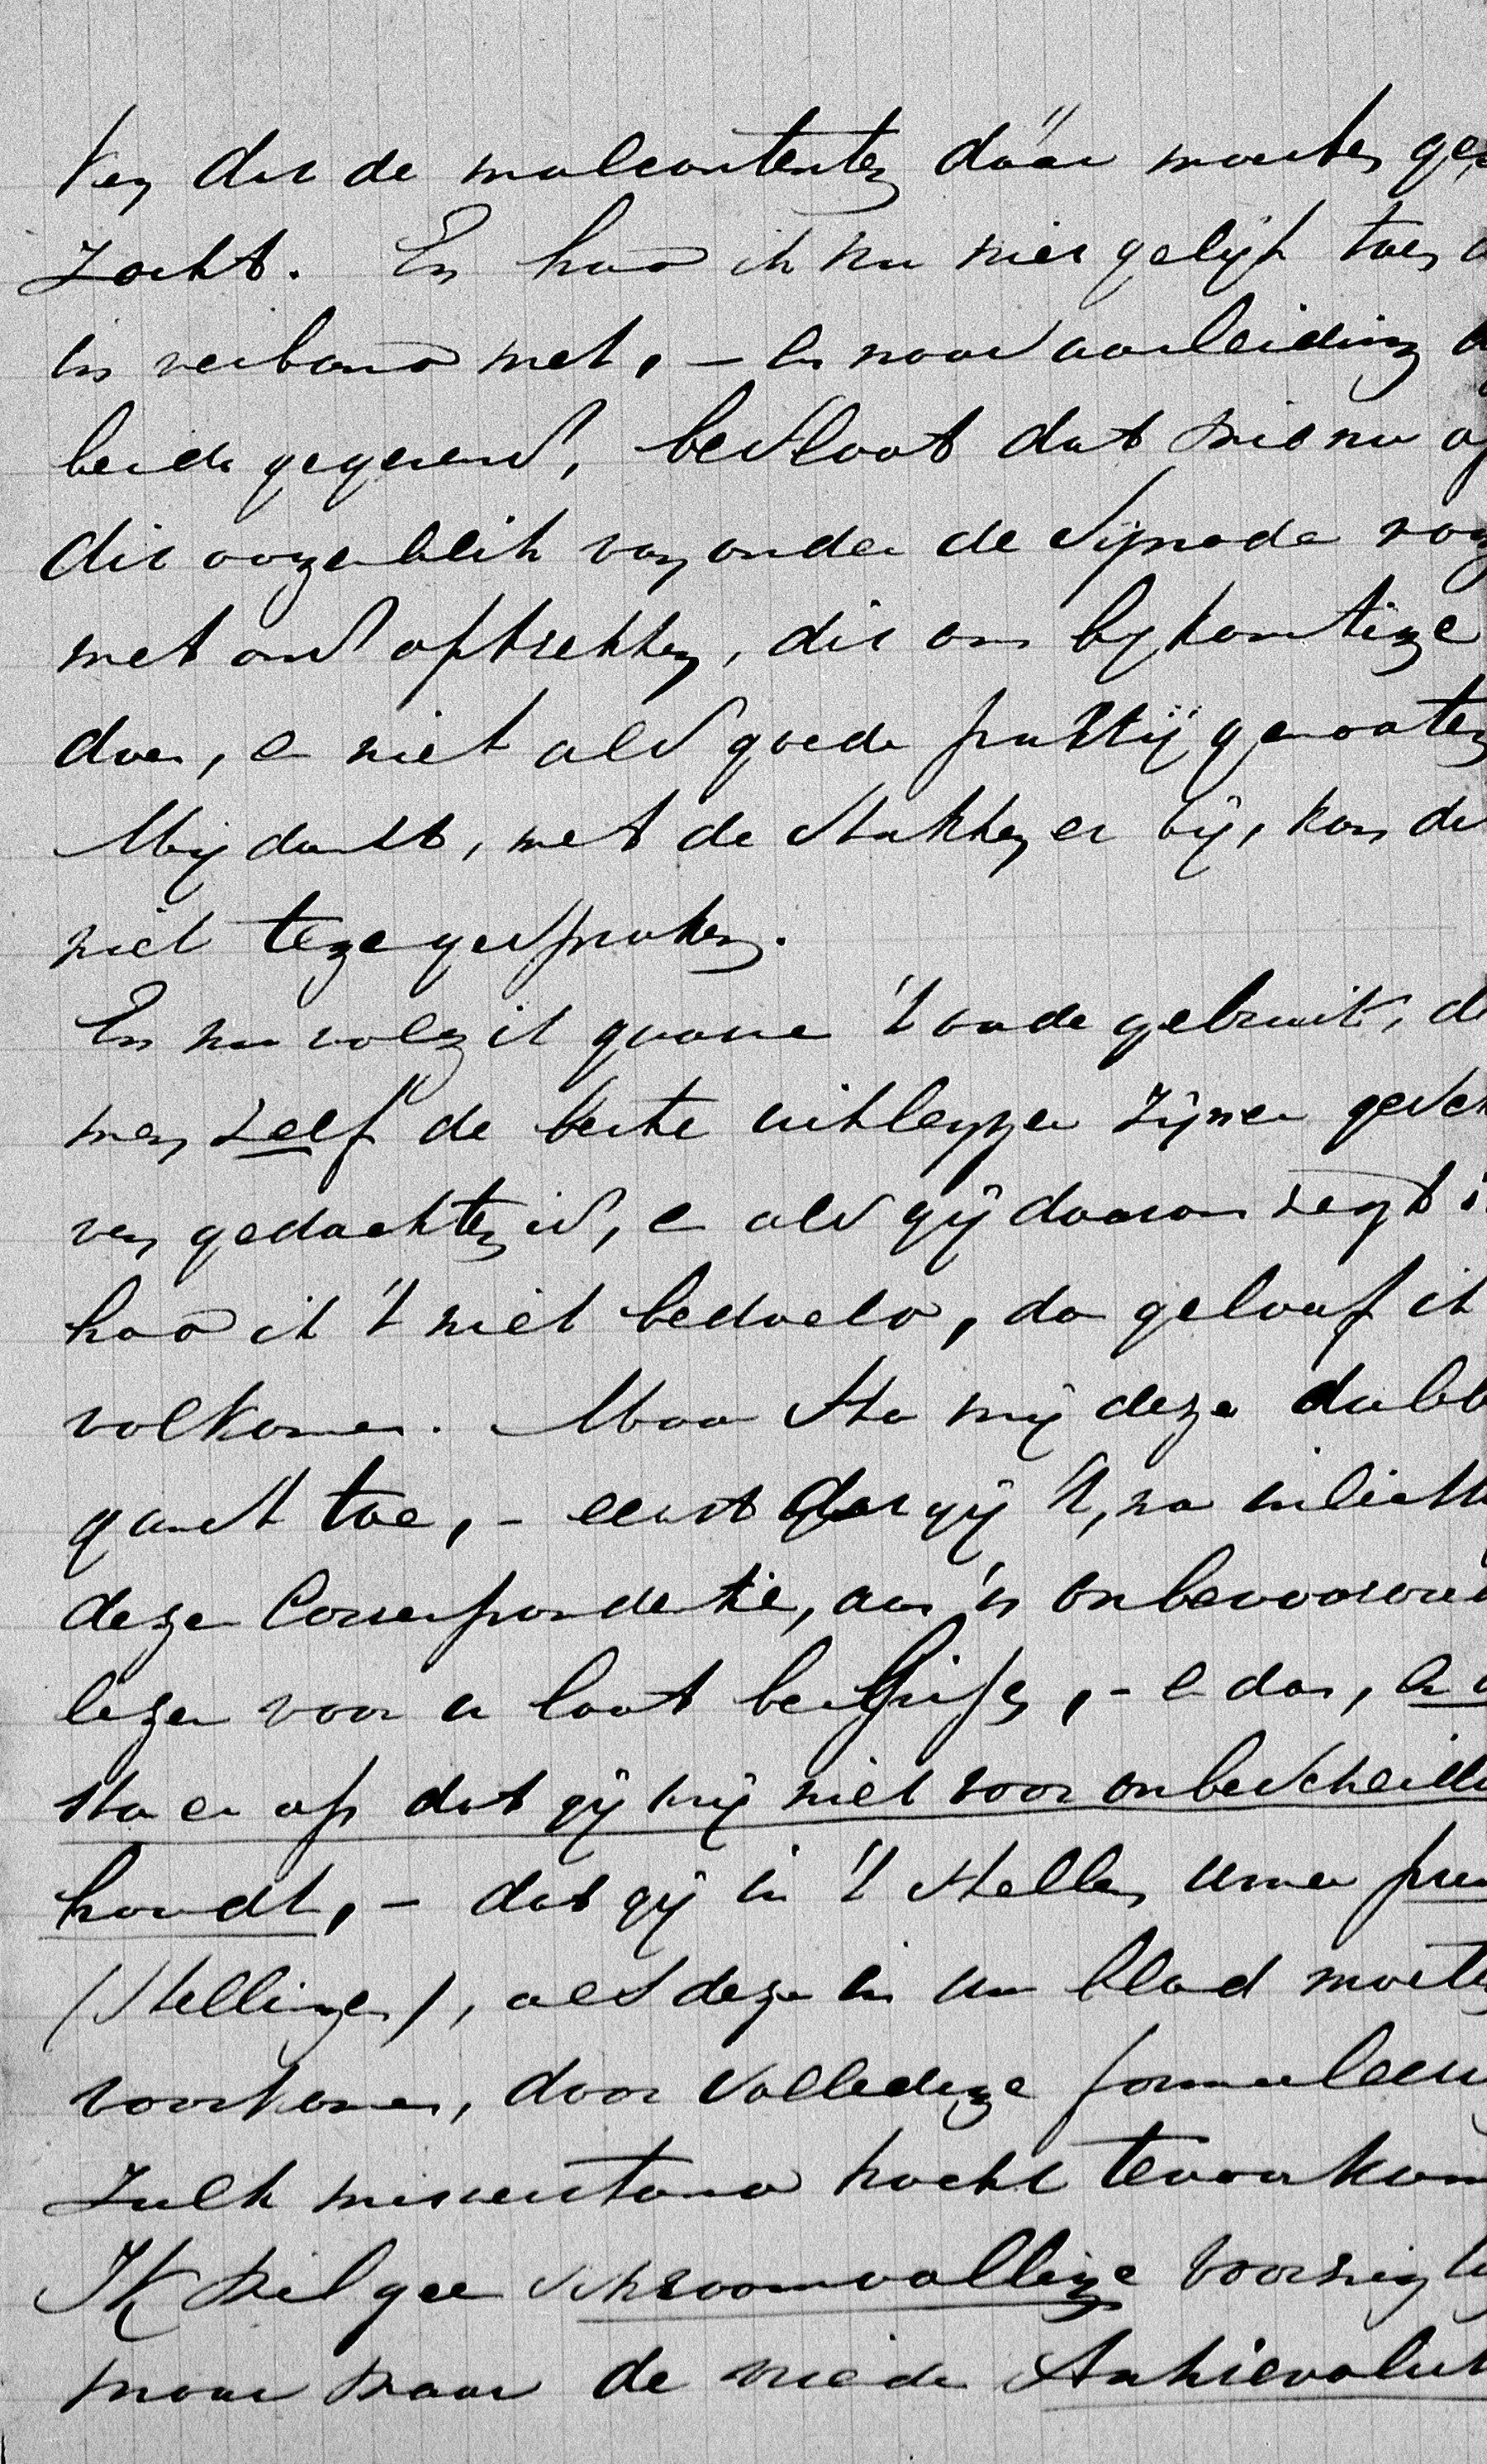 ken dat de malcontenten dáár moeten ge-
zocht. En had ik nu niet gelijk toen
in verband met, – en naar aanleiding
beide gegevens, besloot dat wie nu op
dit oogenblik van onder de Synode nog
met ons optrekken, dit om bijkomstige
doen, en niet als goede partijgenooten
Mij dunkt, met de stukken er bij, kan dit
niet tegengesproken.
En nu volg ik gaarne 't oude gebruik, d
men zelf de beste uitlegger zijner geschre
ven gedachten is, en als gij daarom zegt
had ik 't niet bedoeld, dan geloof ik
volkomen. Maar sta mij deze dubb
gunst toe, – eerst dat gij 't, na
dezer Correspondentie, aan 'n onbevooroord
lezer voor u laat beslissen, – en dan, en
sta er op dat gij mij niet voor onbescheiden
houdt, – dat gij in 't stellen uwer
(stellingen), als deze in uw blad moeten
voorkomen, door volledige formuleering
zulk misverstand tracht te voorkom
Ik wil geen schroomvallige voorzigt
maar voor de vriede Antirevolut